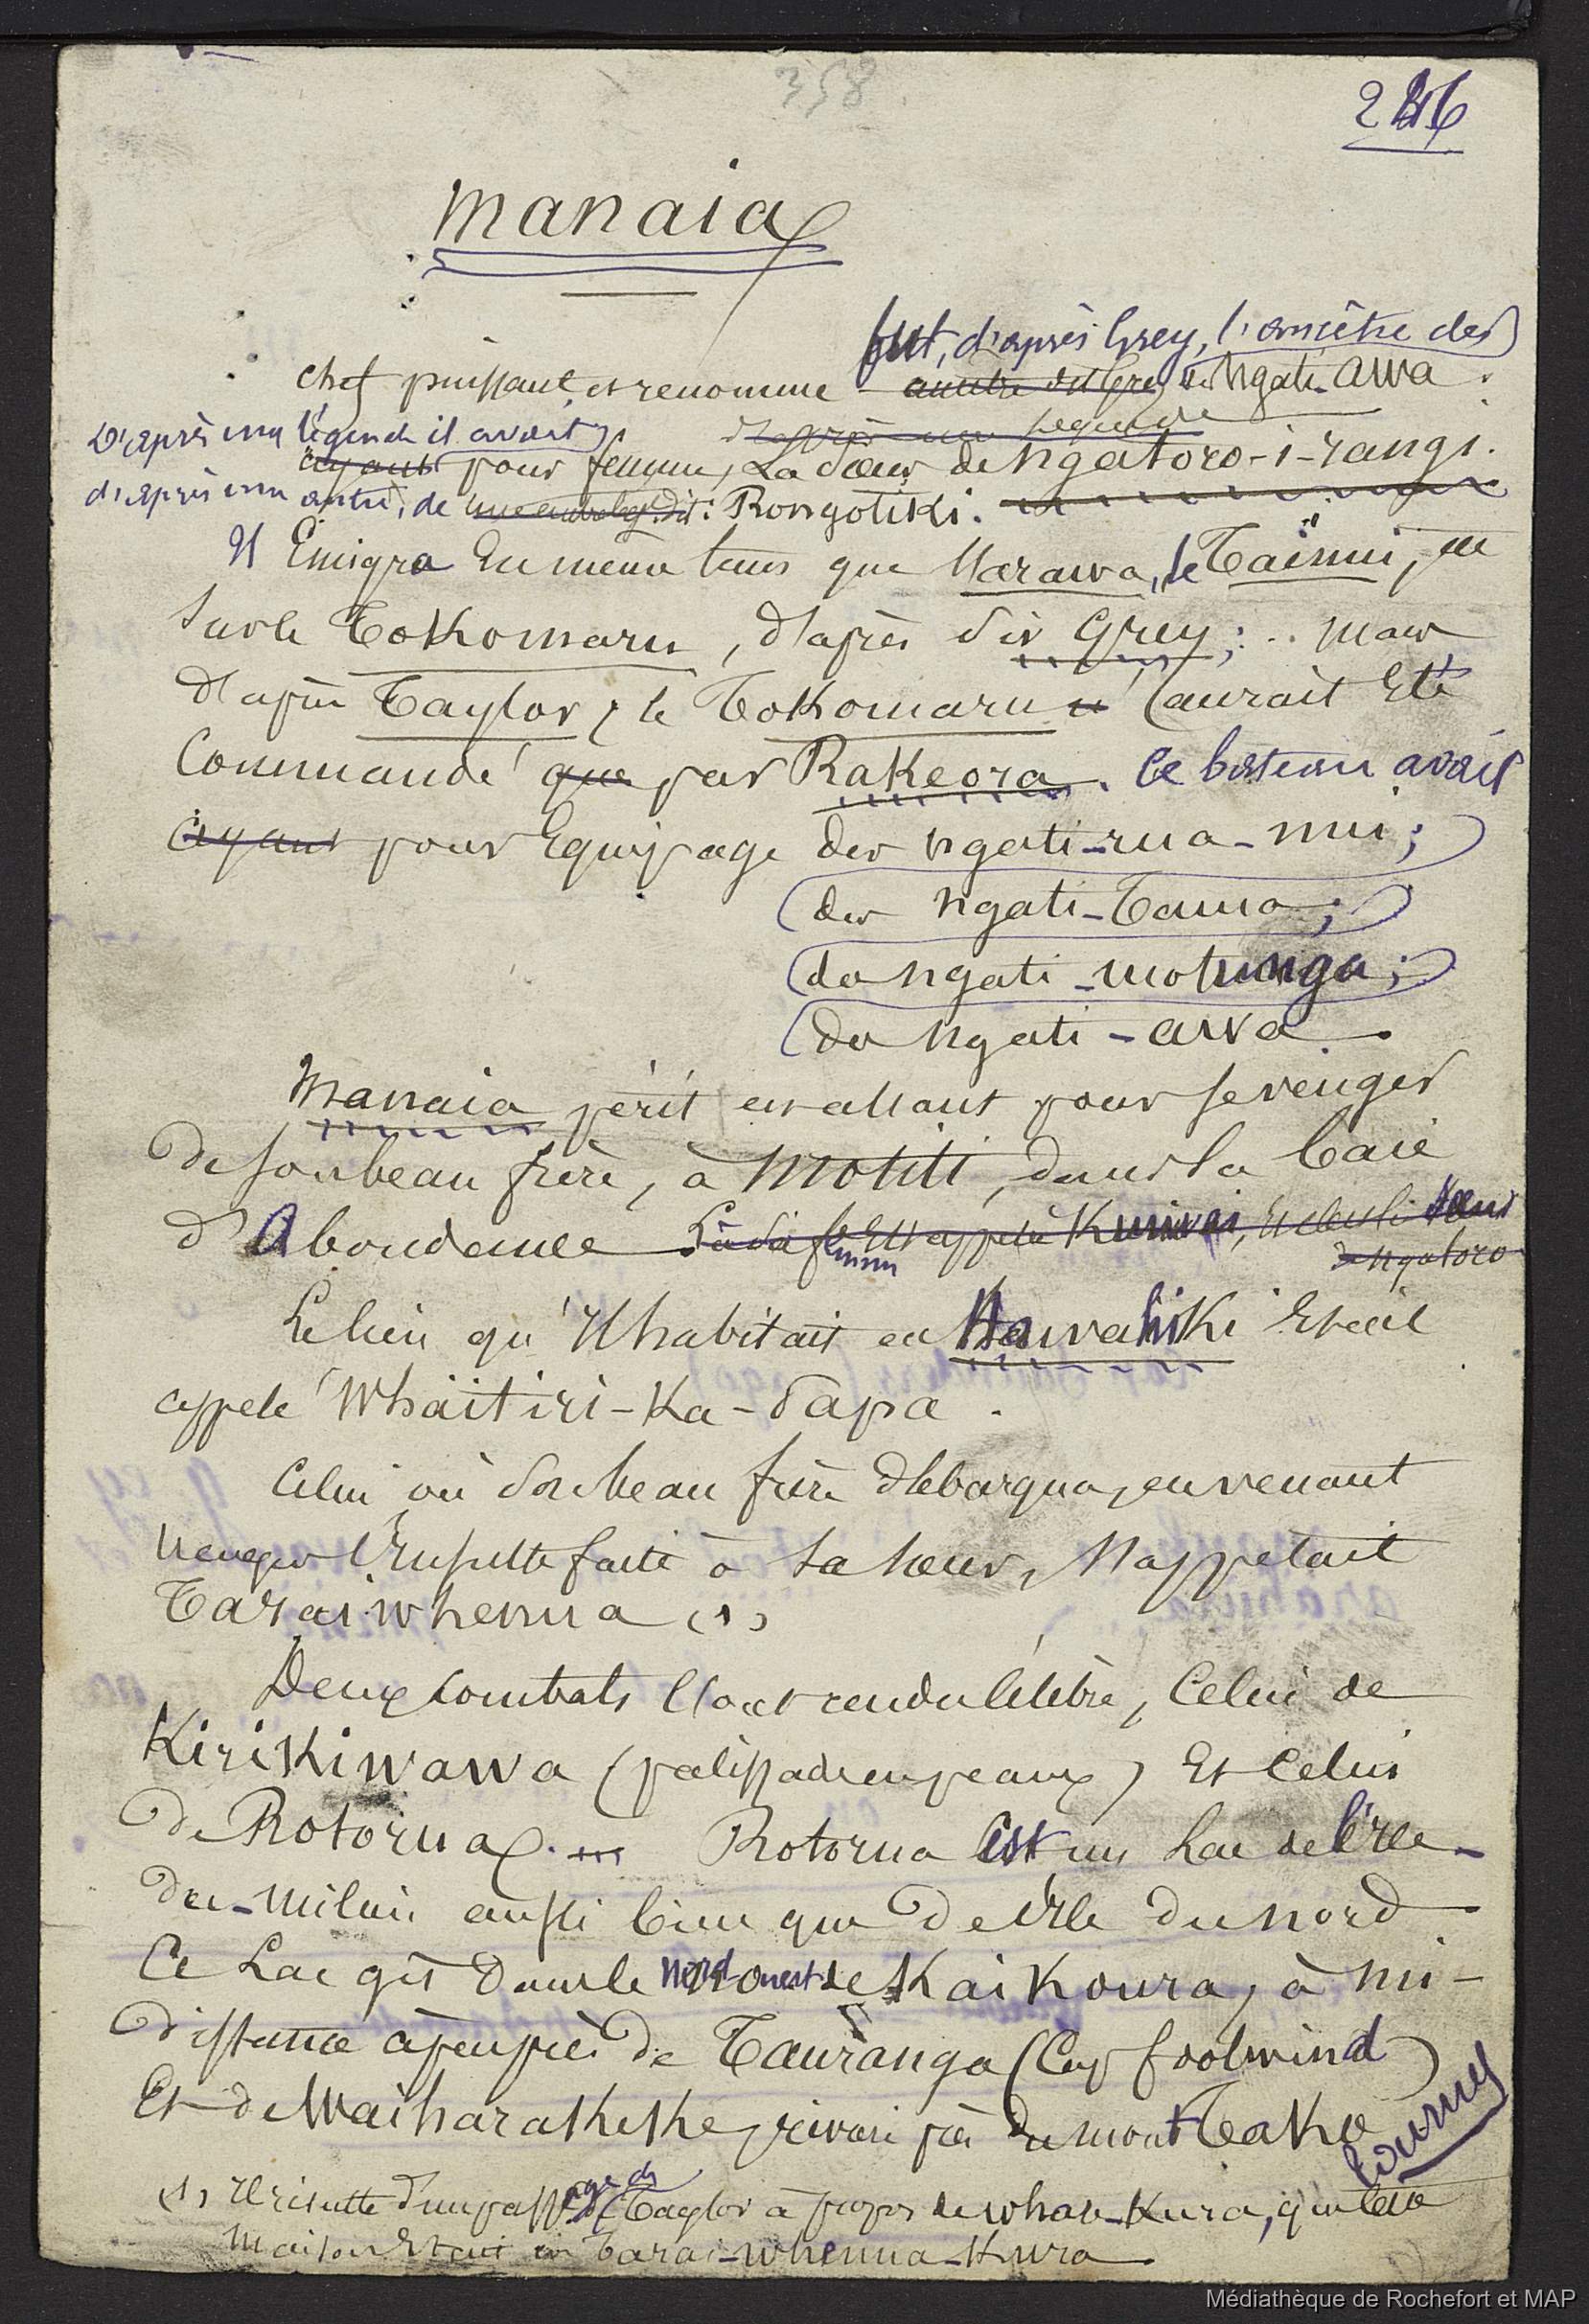 358
246
Manaia
fut, d'après Grey, l'ancêtre des
chef puissant, et renommé ancêtre des Ngati-awa.
D'après une légende il avait d'après une légende
ayant pour femme, La sœur de Ngatoro-i-rangi.
d'après une autre, de une autre leg. dit: Rongotiki.
Il Emigra En même tems que l'Arawa, le Taïnui, et
sur le Tokomaru, d'après Sir Grey; mais,
d'après Taylor, le Tokomaru aurait Eté
Commandé que par Rakeora. Ce bateau avait
ayant pour Equipage des ngati-rua-nui;
des ngati-Tama;
des ngati-motunga;
des ngati-awa.
Manaia périt en allant pour se venger
de son beau frère, à Motiti, dans la baie
d'Abondance
de Ngatoro
Le lieu qu'Il habitait en Hawahiki Etait
appelé Whaïtiri-Ka-Sapa.
Celui où son beau frère débarqua, en venant
venger l'Insulte faite à sa sœur, s'appelait
Taraiwhenua (1)
Deux combats l'ont rendu célèbre, Celui de
Kirikiwawa (palissade en peaux) Et Celui
de Rotorua. Rotorua Est un Lac de l'île-
du-Milieu aussi bien que de l'île du nord
Ce Lac gît dans le Nord-ouest de Kaikoura, à mi-
distance àpeuprès de Tauranga (Cap foolwind)
Et de Waiharakeke, rivière près du mont Tako
Tournez
(1) Il résulte d'un passage de Taylor à propos de whare-Kura, que la
maison Etait en Tarai-whenua-Kura.
Médiathèque de Rochefort et MAP